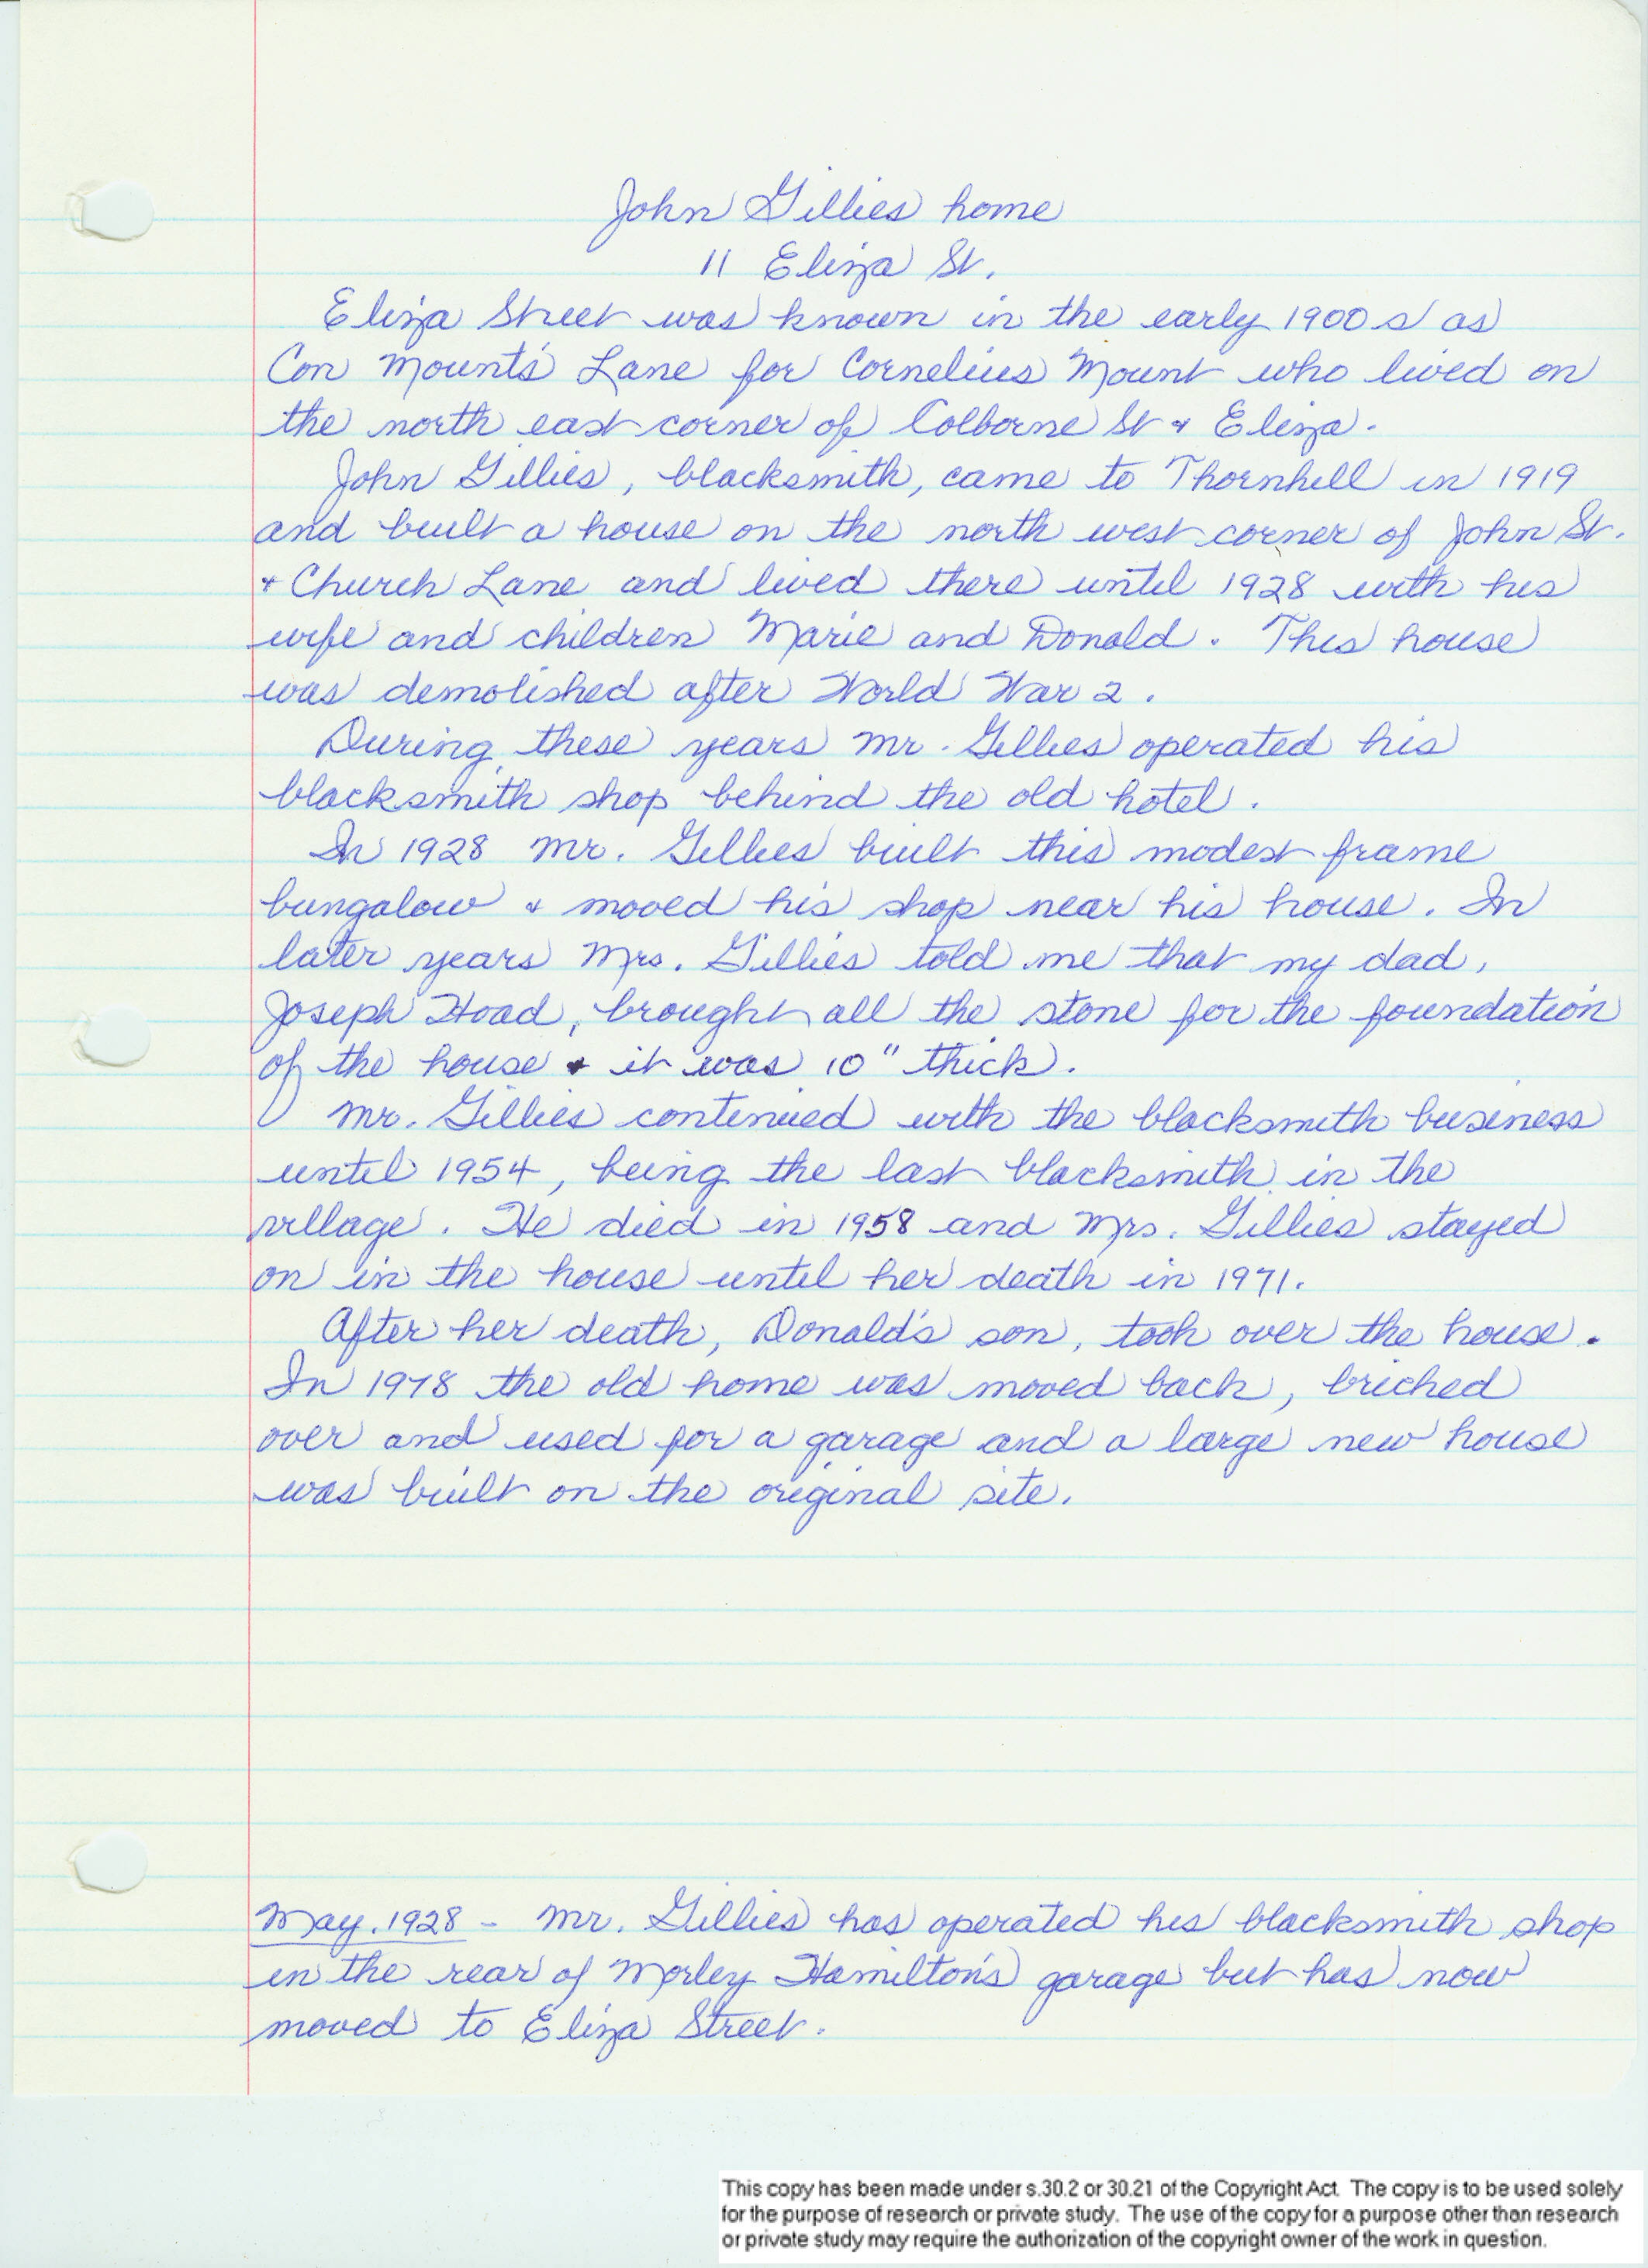 John Gillies home
11 Eliza St.
Eliza Street was known in the early 1900s as
Con Mount's Lane for Cornelius Mount who lived on
the north east corner of Colborne St & Eliza.
John Gillies, blacksmith, came to Thornhill in 1919
and built a house on the north west corner of John St.
& Church Lane and lived there until 1928 with his
wife and children Marie and Donald. This house
was demolished after World War 2.
During these years Mr. Gillies operated his
blacksmith shop behind the old hotel.
In 1928 Mr. Gillies built this modest frame
bungalow & moved his shop near his house. In
later years Mrs. Gillies told me that my dad,
Joseph Hoad, brought all the stone for the foundation
of the house & it was 10" thick.
Mr. Gillies continued with the blacksmith business
until 1954, being the last blacksmith in the
village. He died in 1958 and Mrs. Gillies stayed
on in the house until her death in 1971.
After her death, Donald's son, took over the house.
In 1978 the old home was moved back, bricked
over and used for a garage and a large new house
was built on the original site.
May. 1928 - Mr. Gillies has operated his blacksmith shop
in the rear of Morley Hamilton's garage but has now
moved to Eliza Street.
This copy has been made under s.30.2 or 30.21 of the Copyright Act. The copy is to be used solely
for the purpose of research or private study. The use of the copy for a purpose other than research
or private study may require the authorization of the copyright owner of the work in question.